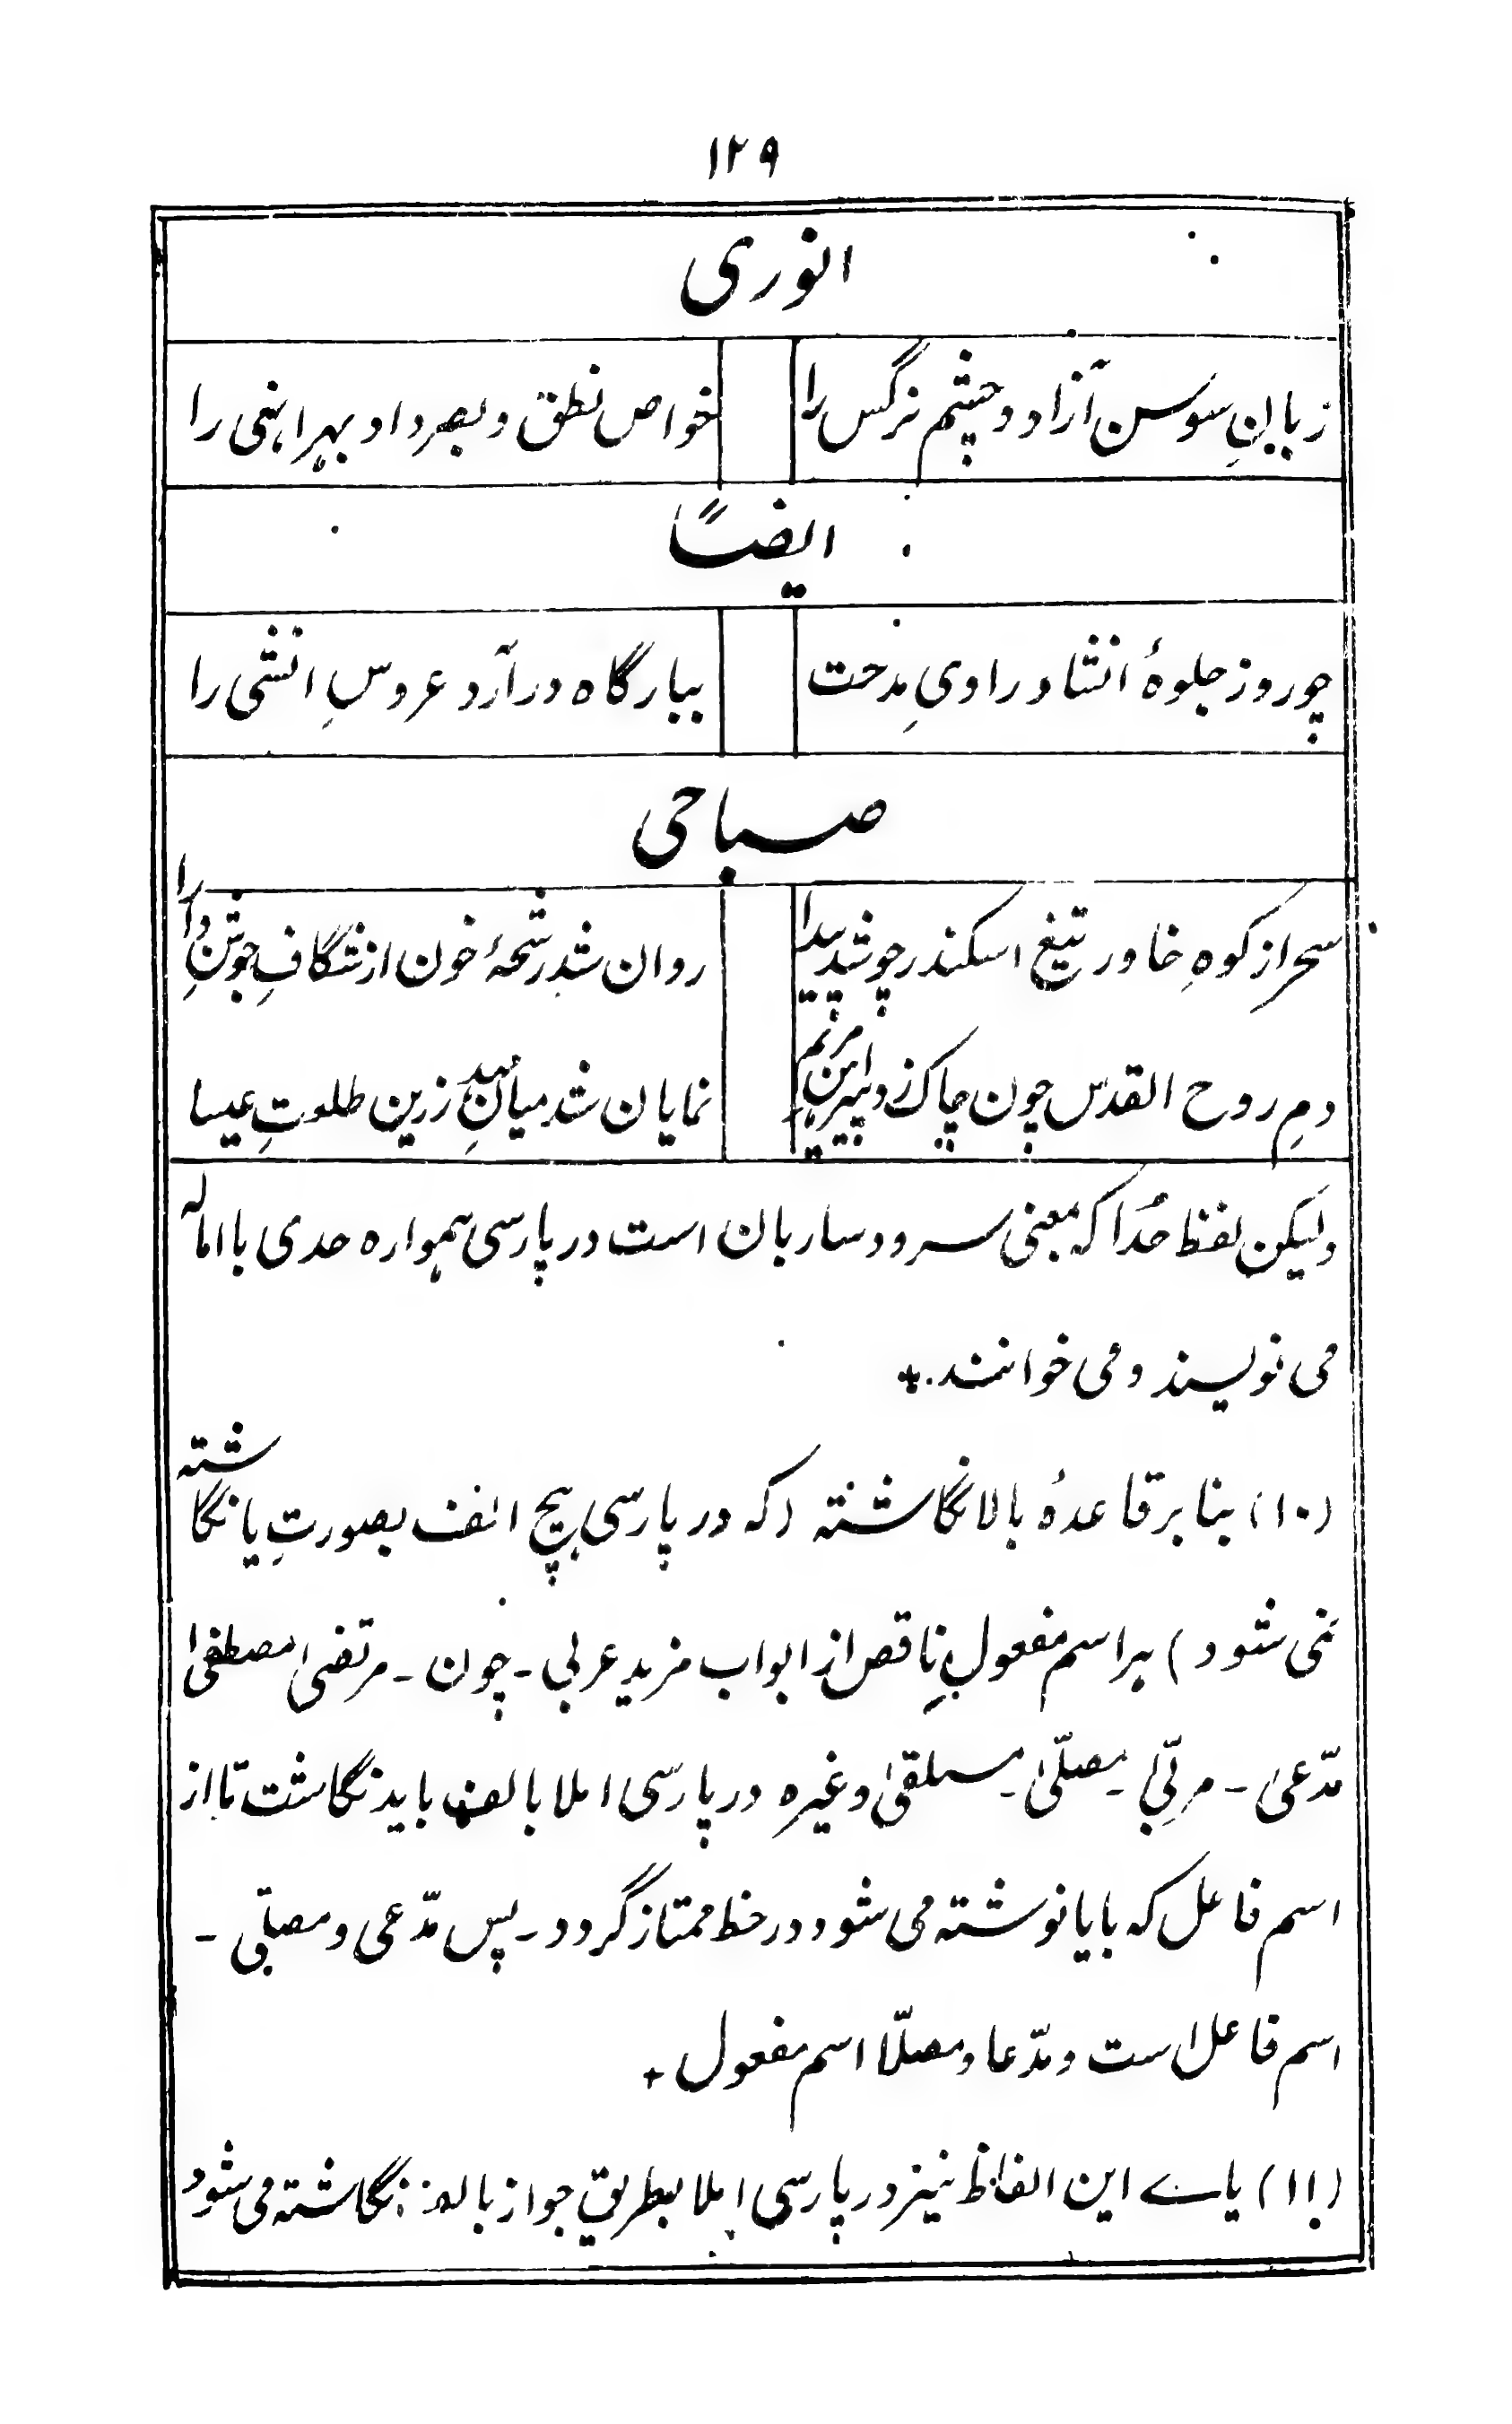 ۱۲۹
انوری
زبانِ سوسن آزاد و چشم نرگس را
خواص نطق و بصر داد بهر انهی را
ایضاً
چو روز جلوۀ انشاد راویِ مدحت
ببارگاه در آرد عروسِ انشی را
صباحی
سحر از کوهِ خاور تیغ اسکندر چو شد پیدا
روان شد رشحۀ خون از شگافِ جوشنِ دارا
دمِ روح القدس چون چاک زد پیراهن مریم
نمایان شد میانِ مهد زرین طلعتِ عیسا
ولیکن لفظ حُدا که بمعنی سرود ساربان است در پارسی همواره حدی با اماله
می نویسند و می خوانند +
(۱۰) بنا بر قاعدۀ بالا نگاشته (که در پارسی هیچ الف بصورتِ یا نگاشته
نمی شود) هر اسم مفعولِ ناقص از ابواب مزید عربی - چون - مرتضیٰ مصطفیٰ
مدّعیٰ - مربّیٰ - مصلّیٰ - مستلقیٰ وغیره در پارسی املا بالف باید نگاشت تا از
اسم فاعل که با یا نوشته می شود در خط ممتاز گردد - پس مدّعی و مصلّی -
اسم فاعل است و مدّعا و مصلّا اسم مفعول +
(۱۱) یاے این الفاظ نیز در پارسی املا بطریقِ جواز بالف نگاشته می شود